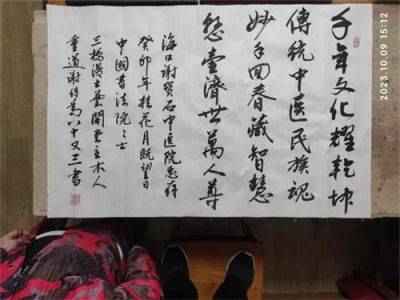 千年文化耀乾坤
傳統中医民族魂
妙手回春藏智慧
悬壺濟世萬人尊
海口謝賢石中医院惠存
癸卯年桂花月既望日
中國書法院院士
三楊漫士藝閑堂主木人
重道謝修為八十又三書
2023.10.09 15:12